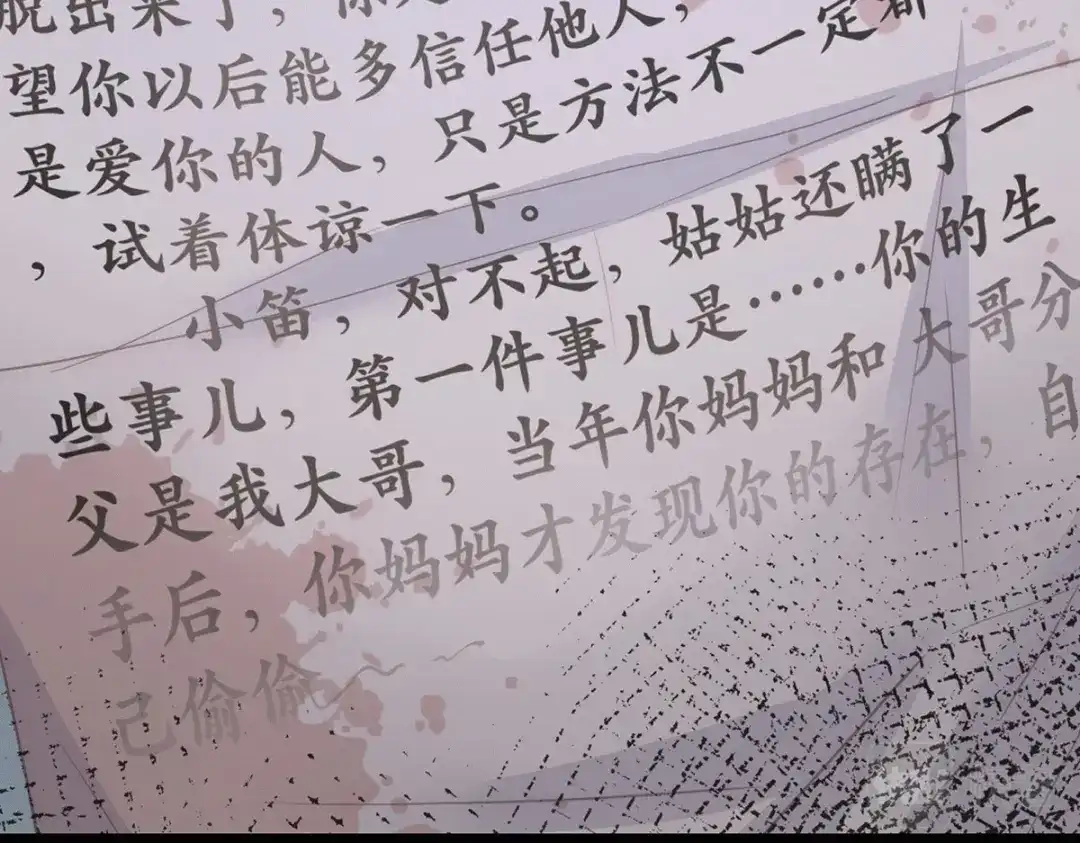 脱出来了，你
望你以后能多信任他人，
是爱你的人，只是方法不一定都
，试着体谅一下。
小笛，对不起，姑姑还瞒了一
些事儿，第一件事儿是……你的生
父是我大哥，当年你妈妈和大哥分
手后，你妈妈才发现你的存在，自
己偷偷～～